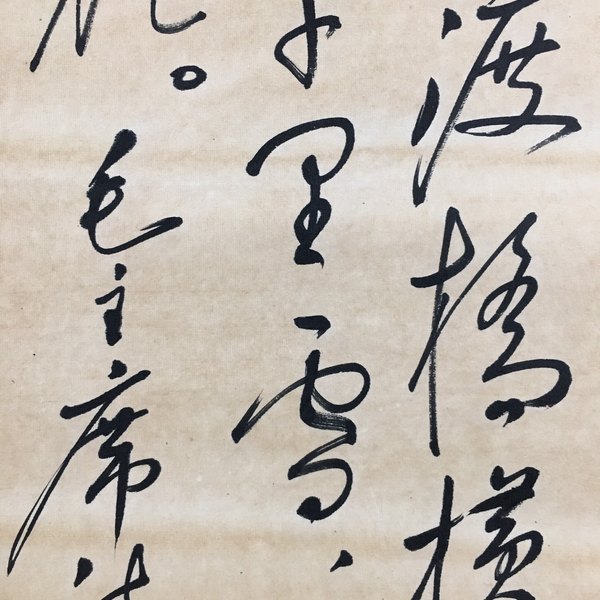 渡橋横
千里雪、
。毛主席